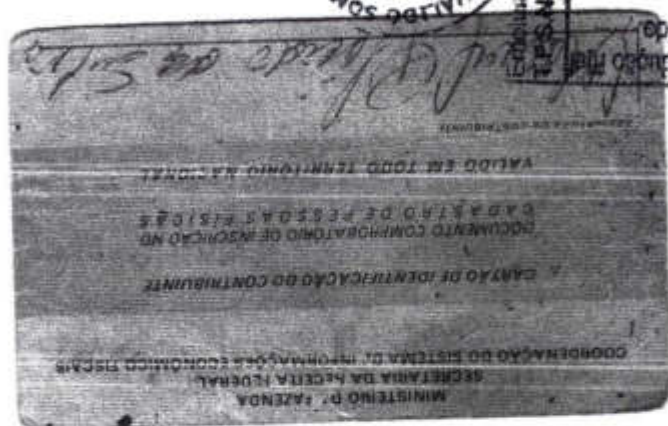 MINISTÉRIO DA FAZENDA
SECRETARIA DA RECEITA FEDERAL
COORDENAÇÃO DO SISTEMA DE INFORMAÇÕES ECONÔMICO FISCAIS
CARTÃO DE IDENTIFICAÇÃO DO CONTRIBUINTE
DOCUMENTO COMPROBATÓRIO DE INSCRIÇÃO NO
CADASTRO DE PESSOAS FÍSICAS
VÁLIDO EM TODO TERRITÓRIO NACIONAL
ASSINATURA DO CONTRIBUINTE